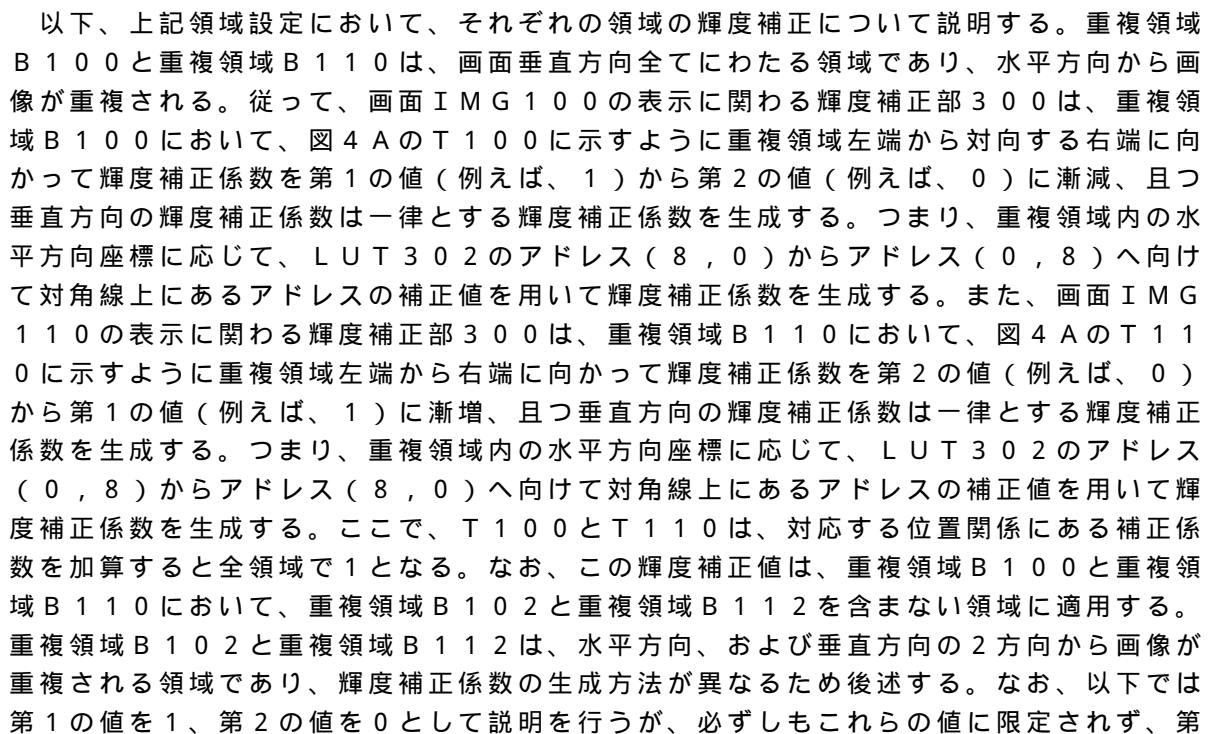 以下、上記領域設定において、それぞれの領域の輝度補正について説明する。重複領域
Ｂ１００と重複領域Ｂ１１０は、画面垂直方向全てにわたる領域であり、水平方向から画
像が重複される。従って、画面ＩＭＧ１００の表示に関わる輝度補正部３００は、重複領
域Ｂ１００において、図４ＡのＴ１００に示すように重複領域左端から対向する右端に向
かって輝度補正係数を第１の値（例えば、１）から第２の値（例えば、０）に漸減、且つ
垂直方向の輝度補正係数は一律とする輝度補正係数を生成する。つまり、重複領域内の水
平方向座標に応じて、ＬＵＴ３０２のアドレス（８，０）からアドレス（０，８）へ向け
て対角線上にあるアドレスの補正値を用いて輝度補正係数を生成する。また、画面ＩＭＧ
１１０の表示に関わる輝度補正部３００は、重複領域Ｂ１１０において、図４ＡのＴ１１
０に示すように重複領域左端から右端に向かって輝度補正係数を第２の値（例えば、０）
から第１の値（例えば、１）に漸増、且つ垂直方向の輝度補正係数は一律とする輝度補正
係数を生成する。つまり、重複領域内の水平方向座標に応じて、ＬＵＴ３０２のアドレス
（０，８）からアドレス（８，０）へ向けて対角線上にあるアドレスの補正値を用いて輝
度補正係数を生成する。ここで、Ｔ１００とＴ１１０は、対応する位置関係にある補正係
数を加算すると全領域で１となる。なお、この輝度補正値は、重複領域Ｂ１００と重複領
域Ｂ１１０において、重複領域Ｂ１０２と重複領域Ｂ１１２を含まない領域に適用する。
重複領域Ｂ１０２と重複領域Ｂ１１２は、水平方向、および垂直方向の２方向から画像が
重複される領域であり、輝度補正係数の生成方法が異なるため後述する。なお、以下では
第１の値を１、第２の値を０として説明を行うが、必ずしもこれらの値に限定されず、第